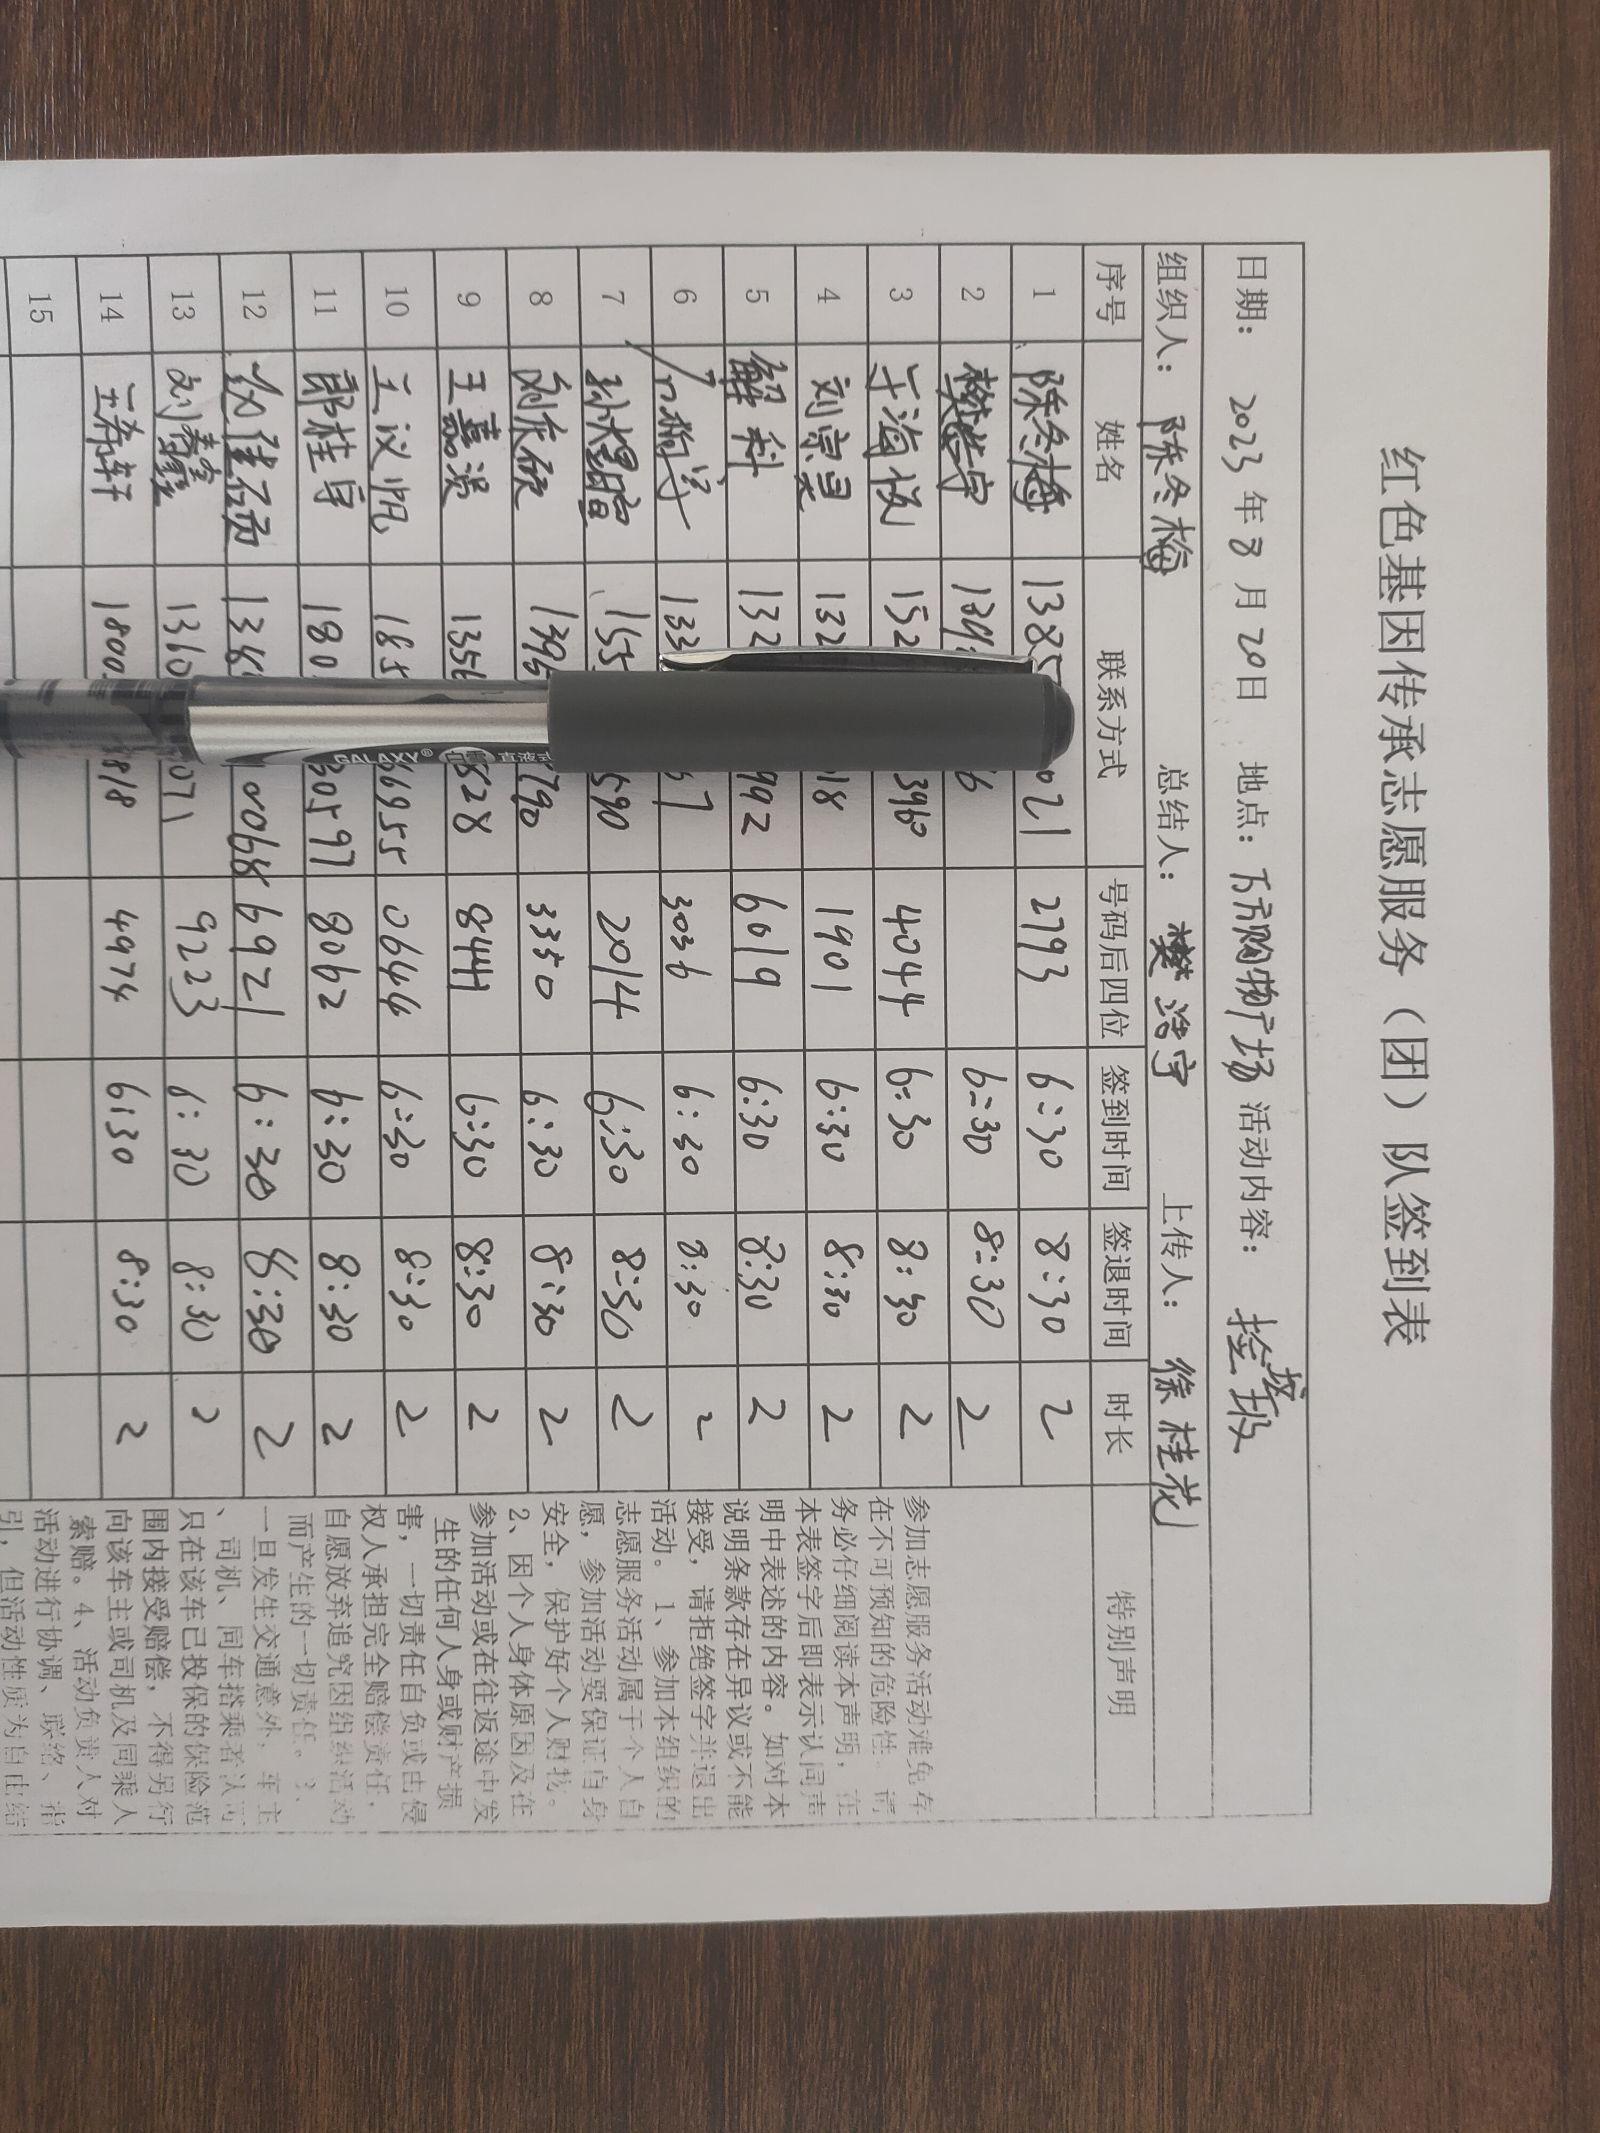 红色基因传承志愿服务（团）队签到表
日期： 2023年8月20日 地点：万方购物广场 活动内容：
组织人：陈冬梅 总结人：樊浩宇 上传人：徐桂花
序号 姓名 联系方式 号码后四位 签到时间 签退时间 时长 特别声明
1 陈冬梅 1385 021 2793 6:30 8:30 2
2 樊浩宇 6:30 8:30 2
3 于海 152 3960 4044 6:30 8:30 2
4 刘宗昊 132 18 1901 6:30 8:30 2
5 解科 132 992 6019 6:30 8:30 2
6 133 57 3036 6:30 8:30 2
7 孙煜暄 155 590 2014 6:30 8:30 2
8 1395 790 3350 6:30 8:30 2
9 王嘉 1356 828 8444 6:30 8:30 2
10 王议帆 185 66955 0644 6:30 8:30 2
11 郎桂宇 180 30597 8062 6:30 8:30 2
12 0068 6921 6:30 8:30 2
13 刘 1310 071 9223 6:30 8:30 2
14 王希轩 1800 818 4974 6:30 8:30 2
15
参加志愿服务活动难免存
在不可预知的危险性，请
务必仔细阅读本声明，在
本表签字后即表示认同声
明中表述的内容。如对本
说明条款存在异议或不能
接受，请拒绝签字并退出
活动。1、参加本组织的
志愿服务活动属于个人自
愿，参加活动要保证自身
安全，保护好个人财物。
2、因个人身体原因及在
参加活动或在往返途中发
生的任何人身或财产损
害，一切责任自负或由侵
权人承担完全赔偿责任，
自愿放弃追究因组织活动
而产生的一切责任。3、
一旦发生交通意外，车主
、司机、同车搭乘者认可
只在该车已投保的保险范
围内接受赔偿，不得另行
向该车主或司机及同乘人
索赔。4、活动负责人对
活动进行协调、联络、指
引，但活动性质为自由结
GALAXY® 白雪 直液式